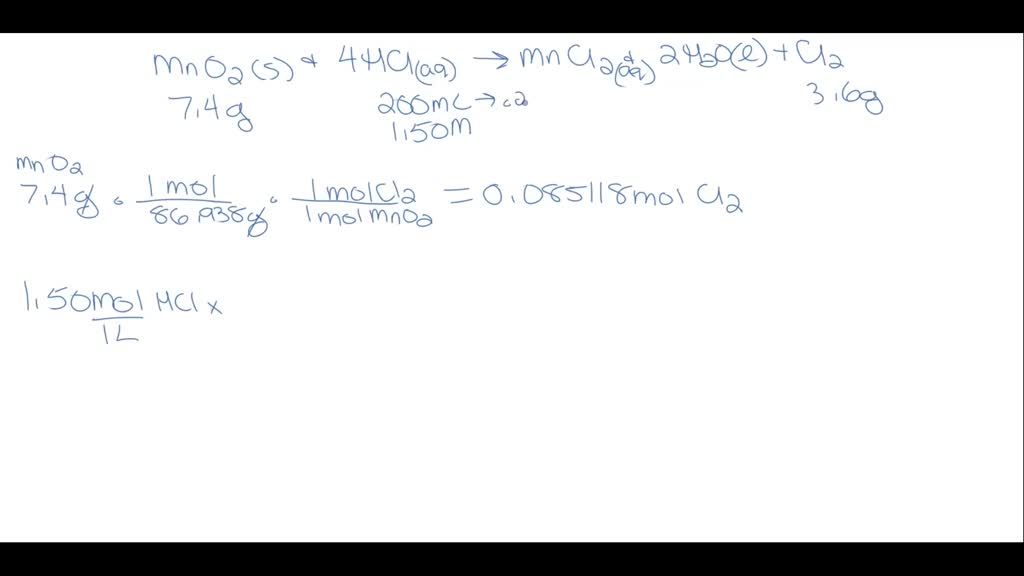 MnO2(s) + 4HCl(aq) → MnCl2(aq) + 2H2O(l) + Cl2
7.4g 200mL → .2 3.6g
1.50M
MnO2
7.4g • 1 mol / 86.938g • 1 mol Cl2 / 1 mol MnO2 = 0.085118 mol Cl2
1.50 mol HCl x
1L